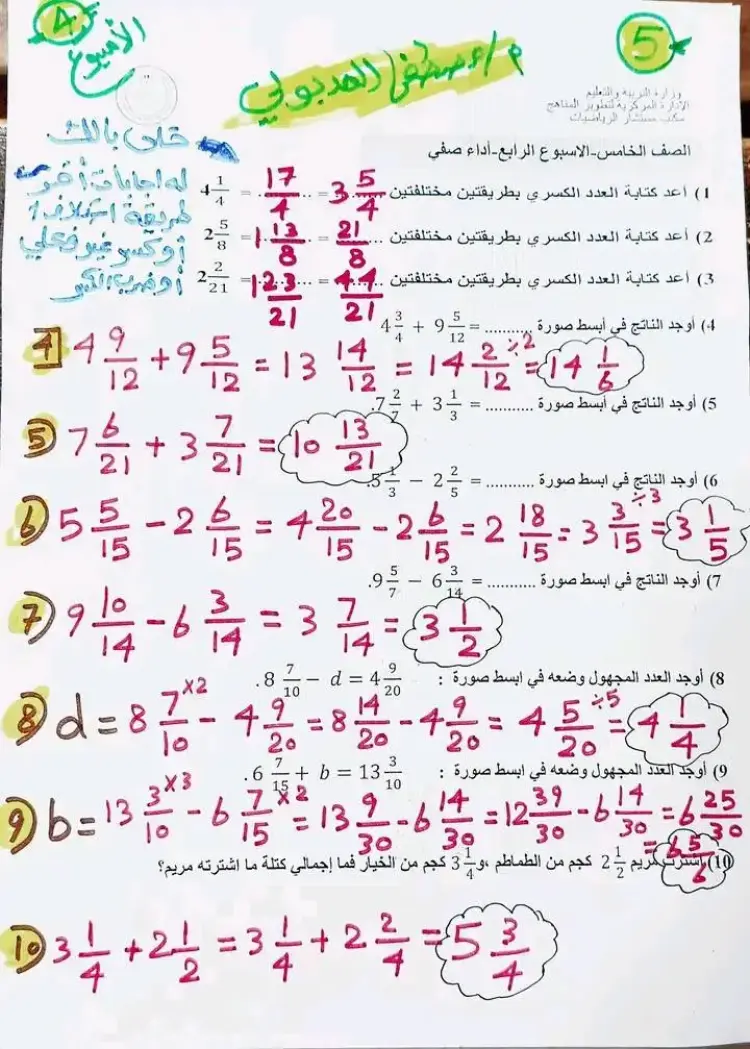 4
الأسبوع
5
م/ مصطفى الهدبولي
وزارة التربية والتعليم
الإدارة المركزية لتطوير المناهج
مكتب مستشار الرياضيات
خلى بالك
له اجابات أخرى
الصف الخامس-الاسبوع الرابع-أداء صفي
1) أعد كتابة العدد الكسري بطريقتين مختلفتين 3 5/4 = 17/4 = 4 1/4
2) أعد كتابة العدد الكسري بطريقتين مختلفتين 21/8 = 1 13/8 = 2 5/8
3) أعد كتابة العدد الكسري بطريقتين مختلفتين 44/21 = 1 23/21 = 2 2/21
4) أوجد الناتج في أبسط صورة ........... = 4 3/4 + 9 5/12
4 4 9/12 + 9 5/12 = 13 14/12 = 14 2/12 ÷2 = 14 1/6
5) أوجد الناتج في أبسط صورة ........... = 7 2/7 + 3 1/3
5) 7 6/21 + 3 7/21 = 10 13/21
6) أوجد الناتج في ابسط صورة ........... = 5 1/3 − 2 2/5
6) 5 5/15 − 2 6/15 = 4 20/15 − 2 6/15 = 2 18/15 = 3 3/15 ÷3 = 3 1/5
7) أوجد الناتج في ابسط صورة ........... = 9 5/7 − 6 3/14
7) 9 10/14 − 6 3/14 = 3 7/14 = 3 1/2
8) أوجد العدد المجهول وضعه في ابسط صورة : 8 7/10 − d = 4 9/20
8) d = 8 7/10 ×2 − 4 9/20 = 8 14/20 − 4 9/20 = 4 5/20 ÷5 = 4 1/4
9) أوجد العدد المجهول وضعه في ابسط صورة : 6 7/15 + b = 13 3/10
9) b = 13 3/10 ×3 − 6 7/15 ×2 = 13 9/30 − 6 14/30 = 12 39/30 − 6 14/30 = 6 25/30
= 6 5/6
10) اشترت مريم 2 1/2 كجم من الطماطم ،و 3 1/4 كجم من الخيار فما إجمالي كتلة ما اشترته مريم؟
10) 3 1/4 + 2 1/2 = 3 1/4 + 2 2/4 = 5 3/4